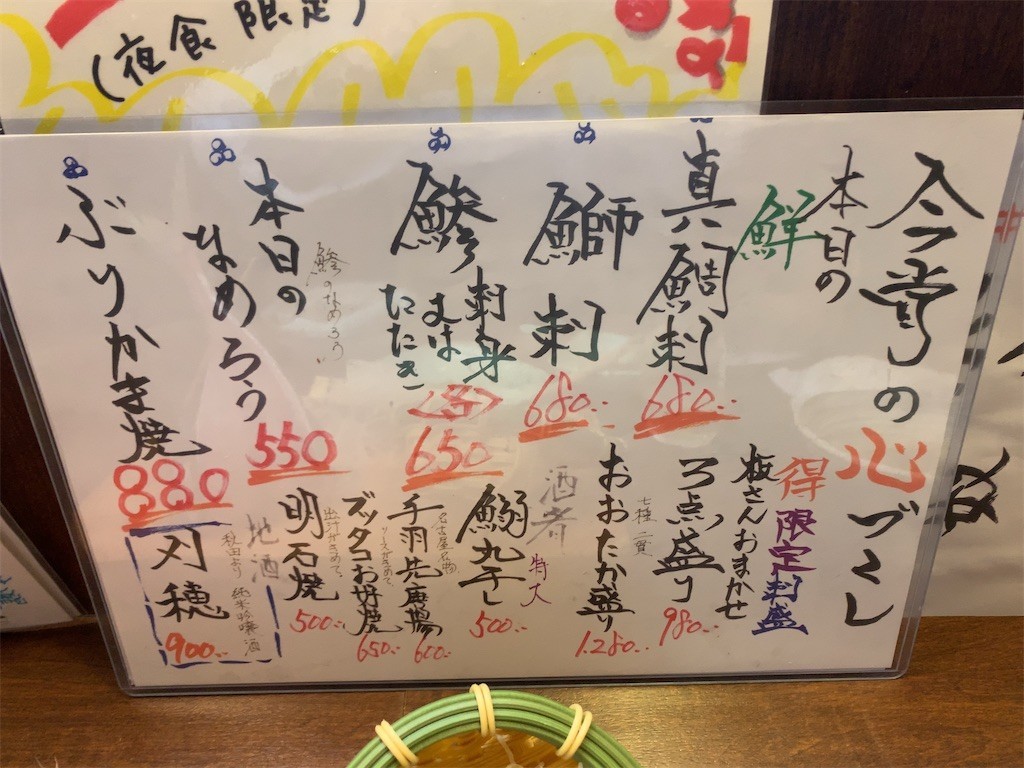 (夜食限定)
今宵の心づくし
本日の
鮮
真鯛刺
680..
鰤刺
680..
鯵
刺身
又は
たたき
650
本日の
なめろう
鯵のなめろう
550
ぶりかま焼
880
得
限定刺盛
板さんおまかせ
3点盛り
980..
おおたか盛り
1.280..
酒肴
鰯丸干し
特大
500..
手羽先唐揚
名古屋名物
600..
ズッタコお好焼
ソースがきめて
650..
明石焼
出汁がきめて
500..
地酒
秋田より
純米吟醸酒
刈穂
900..